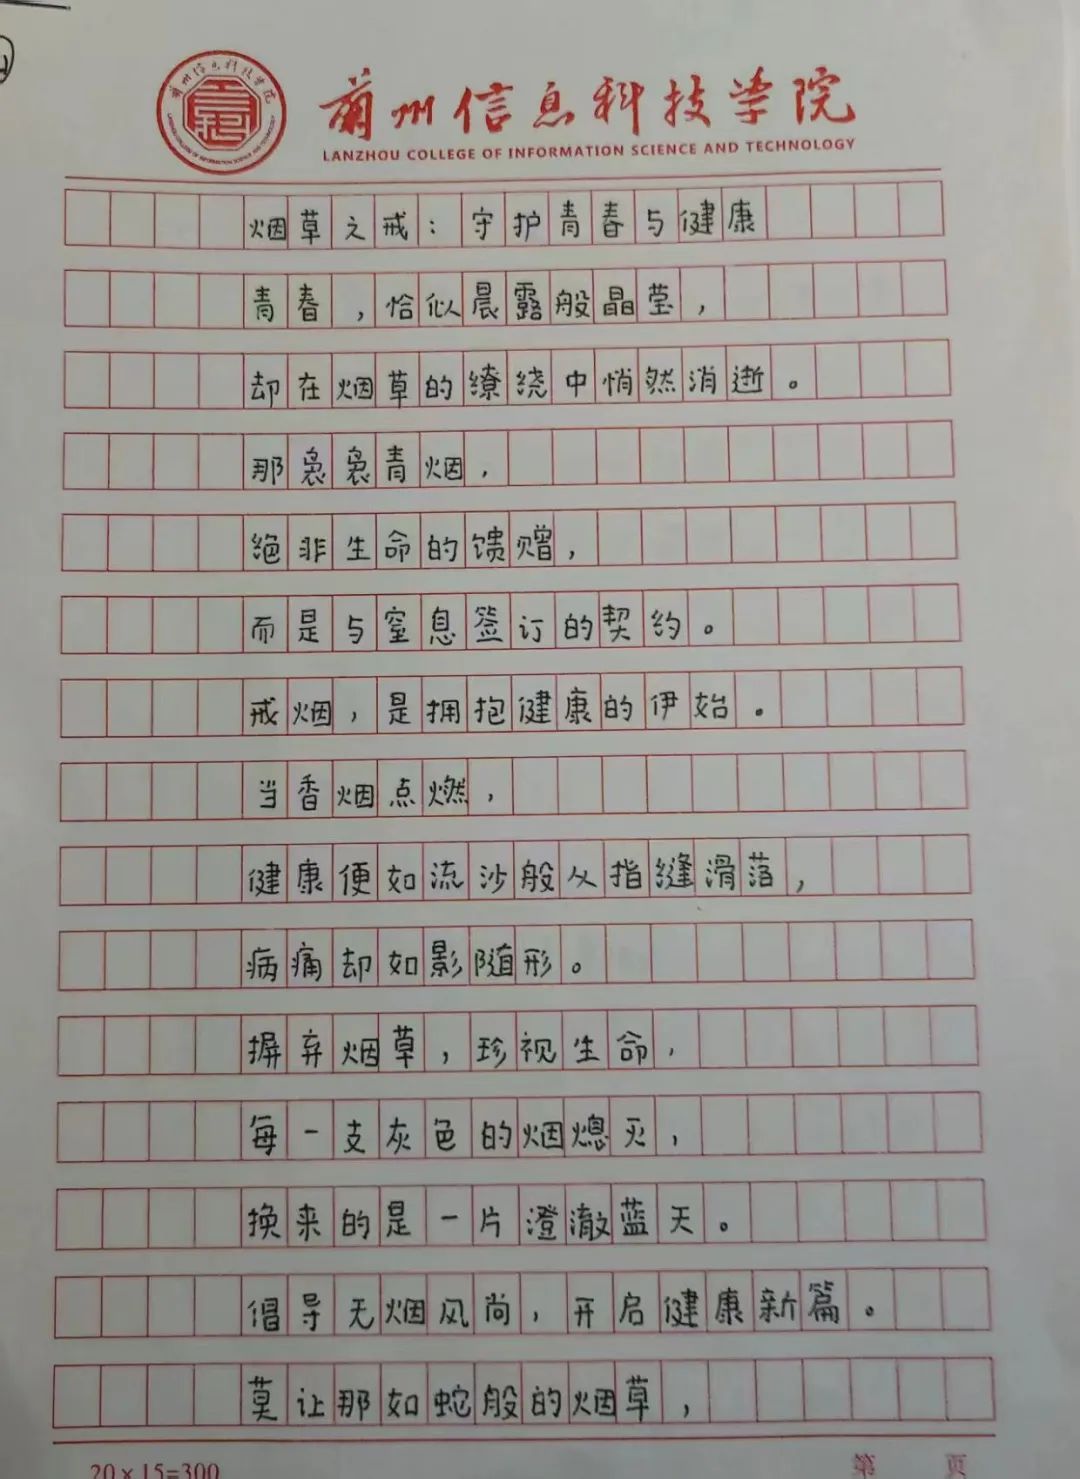 兰州信息科技学院
LANZHOU COLLEGE OF INFORMATION SCIENCE AND TECHNOLOGY
烟草之戒：守护青春与健康
青春，恰似晨露般晶莹，
却在烟草的缭绕中悄然消逝。
那袅袅青烟，
绝非生命的馈赠，
而是与窒息签订的契约。
戒烟，是拥抱健康的伊始。
当香烟点燃，
健康便如流沙般从指缝滑落，
病痛却如影随形。
摒弃烟草，珍视生命，
每一支灰色的烟熄灭，
换来的是一片澄澈蓝天。
倡导无烟风尚，开启健康新篇。
莫让那如蛇般的烟草，
20×15=300
第 页